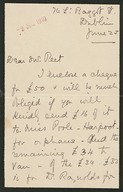 76 L. Baggot St
Dublin
June 25
Dear Mr Peet
I enclose a cheque
for £50 & will be much
obliged if you will
kindly send £16 of it
to Miss Poole
for orphans. And the
remaining £34 to
Of the £34 £33
is to for Dr Reynolds for